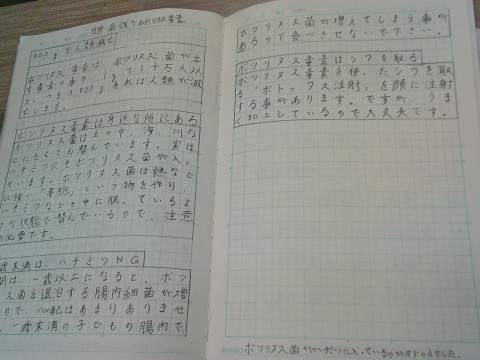 最強うボツリヌス毒素
500gで人類滅亡
ボツリヌス毒素は、ボツリヌス菌が出
す毒素の事で、1gで1千万人以
上、つまり500gあれば人類が滅
亡します。
ボツリヌス毒素は身近な所にある
ボツリヌス菌は土の中、海、川な
どにたくさん潜んでいます。実は
ハチミツにもボツリヌス菌が入っ
ています。ボツリヌス菌は熱など
に強い「芽胞」という物を作り、
ハチミツなどの中に眠っているよ
うな状態で潜んでいるので、注意
が必要です。
歳未満は、ハチミツNG
は、一歳以上になると、ボツ
ヌス菌を退治する腸内細菌が増
ので、心配はあまりありませ
、一歳未満の子どもの腸内で、
ボツリヌス菌が増えてしまう事が
あるので食べさせないで下さい。
ボツリヌス菌はシワを取る
ボツリヌス毒素を使ったシワを取
る「ボトックス注射」を顔に注射
する事があります。ですが、うま
く加工しているので大丈夫です。
ボツリヌス菌がハチミツに入っているのが